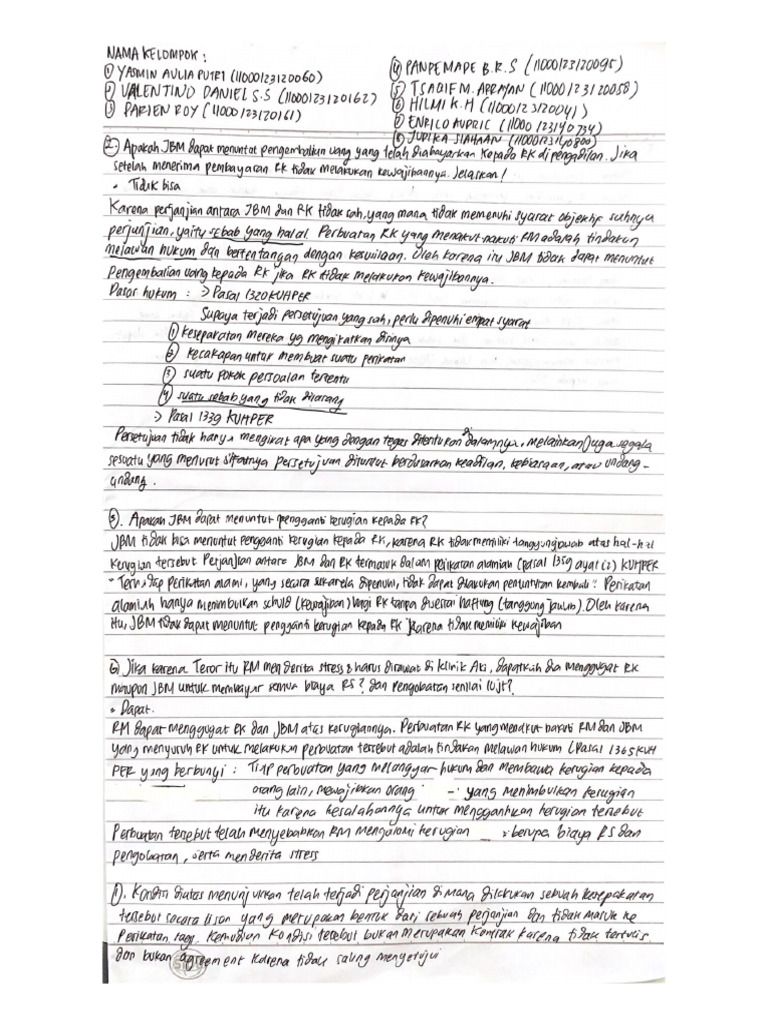 NAMA KELOMPOK :
① YASMIN AULIA PUTRI (11000123120060)
② VALENTINO DANIEL S.S (11000123120162)
③ PARIEN ROY (11000123120161)
④ PANDEMADE B.R.S (11000123120095)
⑤ TSAQIF M. ARRAYAN (11000123120058)
⑥ HILMI K.H (11000123120041)
⑦ ENRICO AUDRIC (11000123140734)
⑧ JUDIKA SIAHAAN (11000123140800)
②. Apakah JBM dapat menuntut pengembalian uang yang telah dibayarkan kepada RK di pengadilan. Jika
setelah menerima pembayaran RK tidak melakukan kewajibannya. Jelaskan!
• Tidak bisa
Karena perjanjian antara JBM dan RK tidak sah, yang mana tidak memenuhi syarat objektif sahnya
perjanjian, yaitu sebab yang halal. Perbuatan RK yang menakut-nakuti RM adalah tindakan
melawan hukum dan bertentangan dengan kesusilaan. Oleh karena itu JBM tidak dapat menuntut
Pengembalian uang kepada RK jika RK tidak melakukan kewajibannya.
Dasar hukum : -> Pasal 1320 KUHPER
Supaya terjadi persetujuan yang sah, perlu dipenuhi empat syarat
① kesepakatan mereka yg mengikatkan dirinya
② kecakapan untuk membuat suatu perikatan
③ suatu pokok persoalan tertentu
④ suatu sebab yang tidak dilarang
-> Pasal 1339 KUHPER
Persetujuan tidak hanya mengikat apa yang dengan tegas ditentukan di dalamnya, melainkan juga segala
sesuatu yang menurut sifatnya persetujuan dituntut berdasarkan keadilan, kebiasaan, atau undang-
undang.
③. Apakah JBM dapat menuntut pengganti kerugian kepada RK?
JBM tidak bisa menuntut pengganti kerugian kepada RK, karena RK tidak memiliki tanggung jawab atas hal-hal
kerugian tersebut Perjanjian antara JBM dan RK termasuk dalam perikatan alamiah (pasal 1359 ayat (2) KUHPER
"Terhadap perikatan alami, yang secara sukarela dipenuhi, tidak dapat dilakukan penuntutan kembali". Perikatan
alamiah hanya menimbulkan schuld (kewajiban) bagi RK tanpa disertai haftung (tanggung jawab). Oleh karena
itu, JBM tidak dapat menuntut pengganti kerugian kepada RK karena tidak memiliki kewajiban
⑥ Jika karena Teror itu RM menderita stress & harus dirawat di klinik Ati, dapatkah dia menggugat RK
maupun JBM untuk membayar semua biaya RS? dan pengobatan senilai 10jt?
• Dapat.
RM dapat menggugat RK dan JBM atas kerugiannya. Perbuatan RK yang menakut nakuti RM dan JBM
yang menyuruh RK untuk melakukan perbuatan tersebut adalah tindakan melawan hukum (Pasal 1365 KUH
PER yang berbunyi : Tiap perbuatan yang melanggar hukum dan membawa kerugian kepada
orang lain, mewajibkan orang yang menimbulkan kerugian
itu karena kesalahannya untuk menggantikan kerugian tersebut
Perbuatan tersebut telah menyebabkan RM mengalami kerugian berupa biaya RS dan
pengobatan, serta menderita stress
①. Kondisi diatas menunjukkan telah terjadi perjanjian dimana dilakukan sebuah kesepakatan
tersebut secara lisan yang merupakan bentuk dari sebuah perjanjian dan tidak masuk ke
Perikatan. Kemudian kondisi tersebut bukan merupakan kontrak karena tidak tertulis
dan bukan agreement karena tidak saling menyetujui